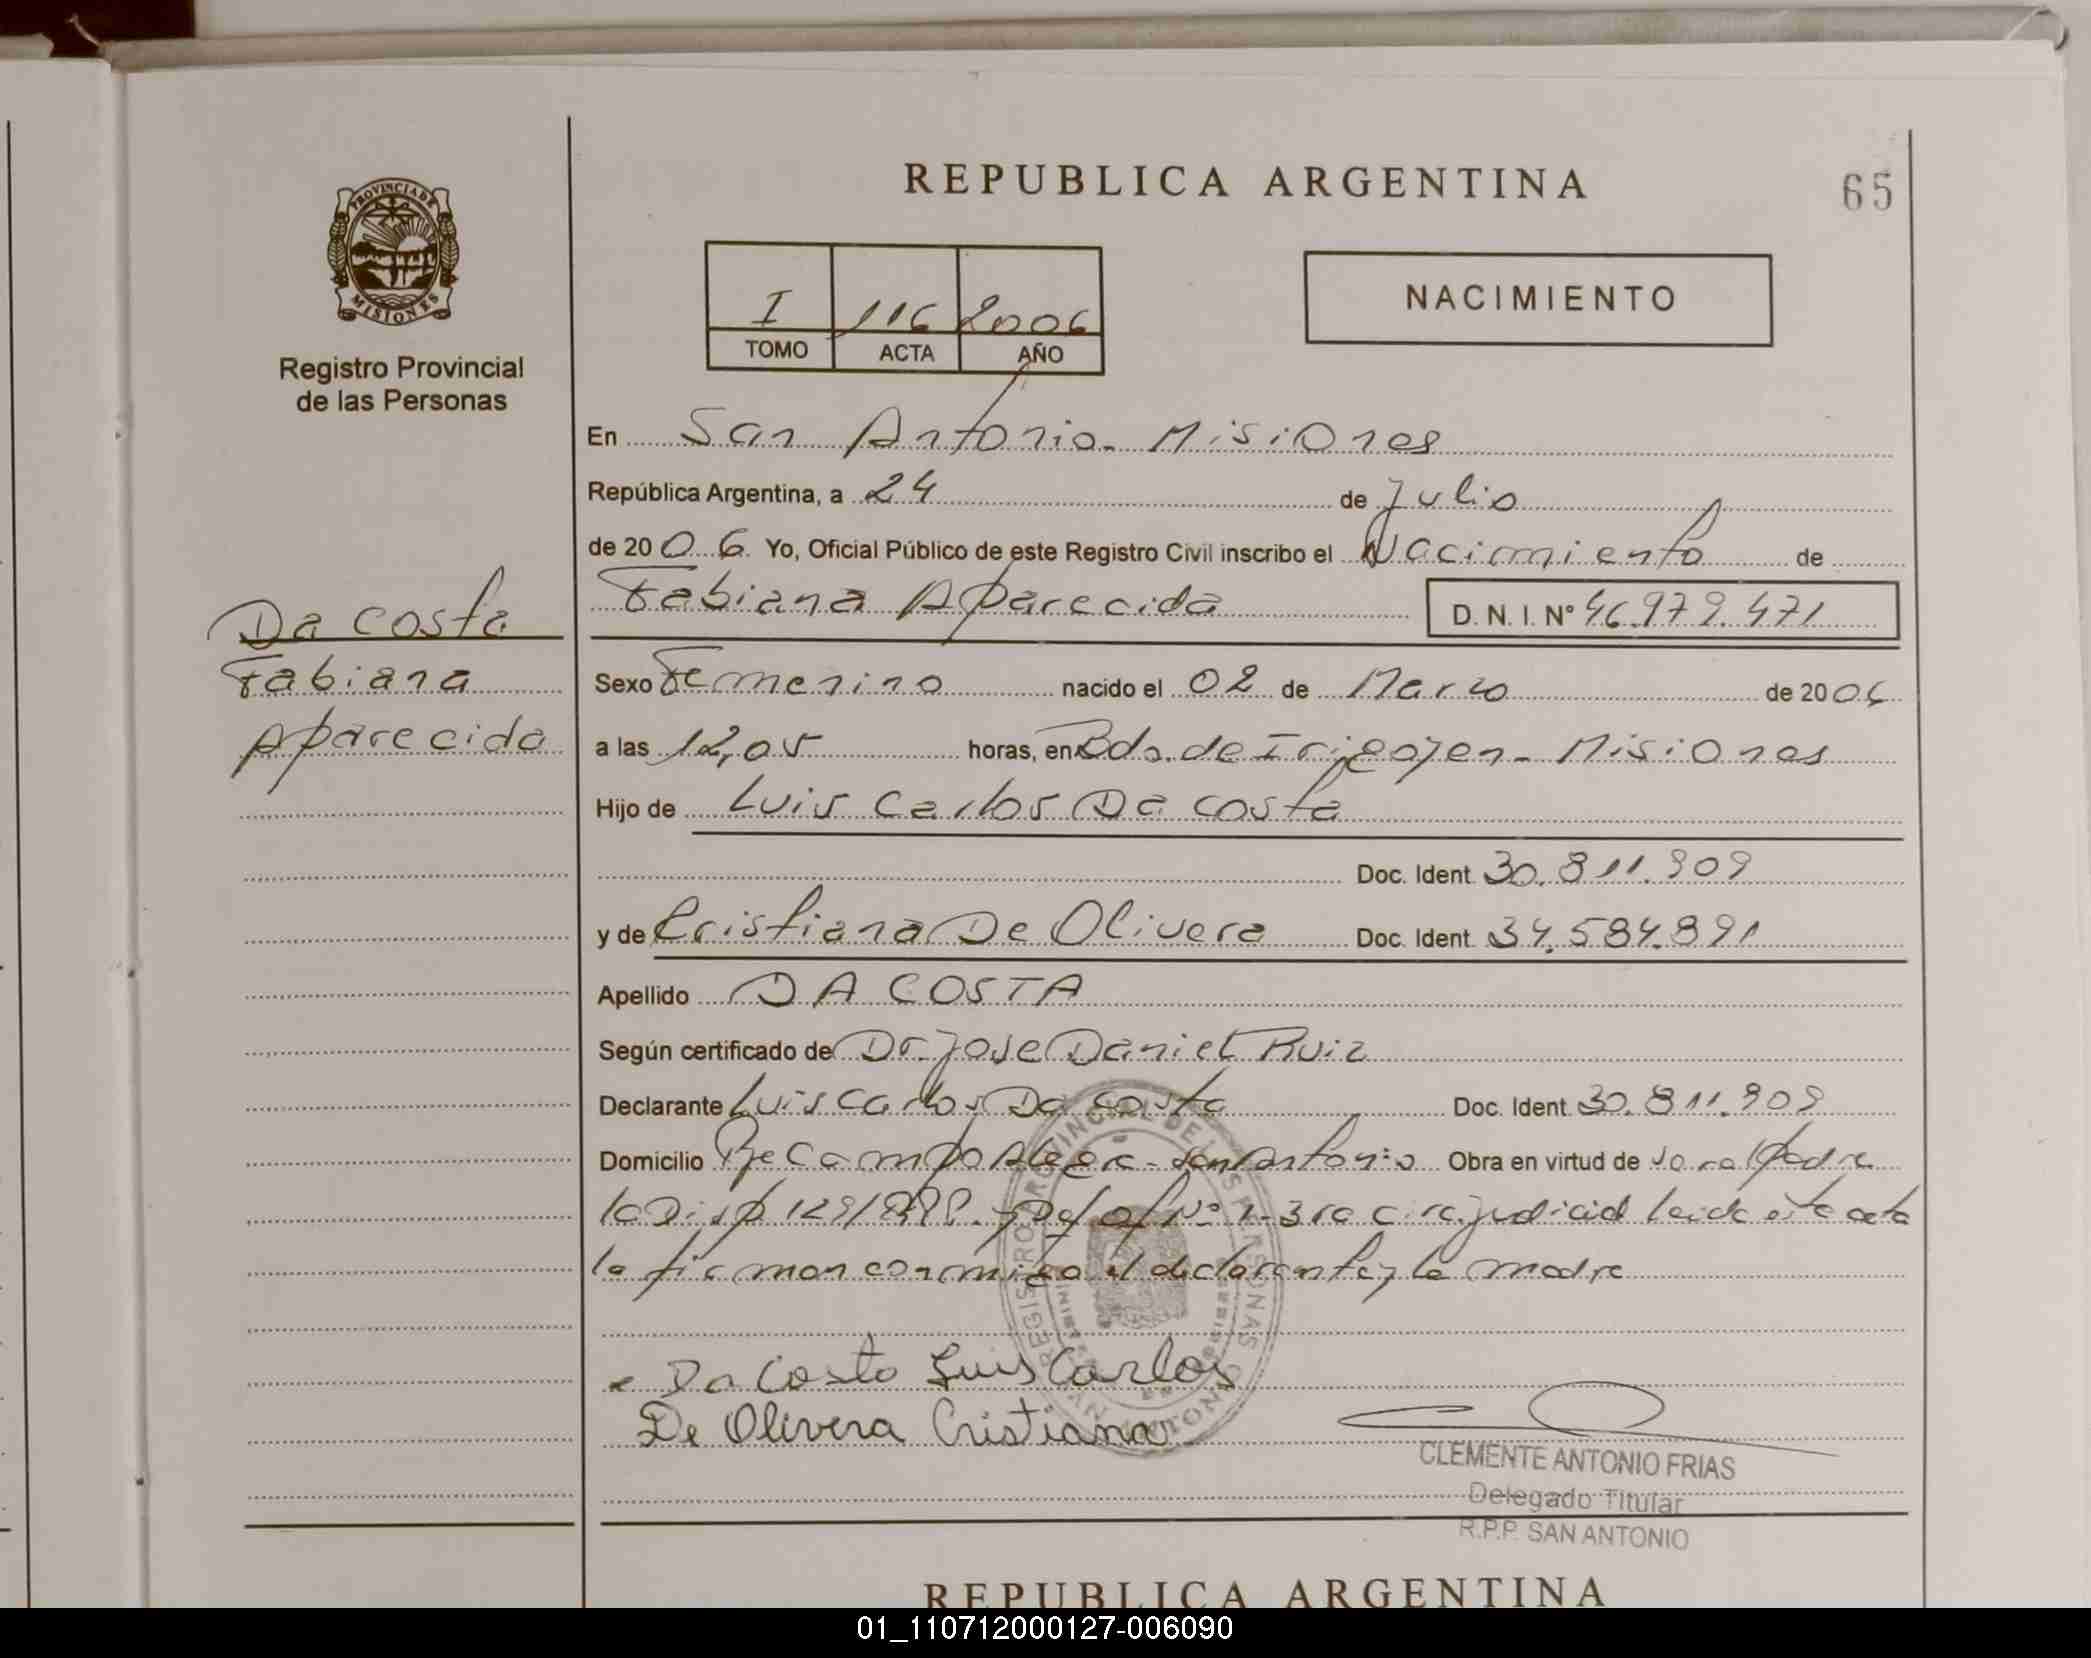 REPUBLICA ARGENTINA
65
PROVINCIA DE MISIONES
Registro Provincial
de las Personas
I 116 2006
TOMO ACTA AÑO
NACIMIENTO
En San Antonio - Misiones
República Argentina, a 24 de Julio
de 2006 Yo, Oficial Público de este Registro Civil inscribo el Nacimiento de
Fabiana Aparecida D. N. I. N° 46.979.471
Da Costa
Fabiana
Aparecida
Sexo Femenino nacido el 02 de Marzo de 2006
a las 12,05 horas, en Bdo. de Irigoyen - Misiones
Hijo de Luis Carlos Da Costa
Doc. Ident. 30.811.909
y de Cristiana De Olivera Doc. Ident. 34.584.891
Apellido DA COSTA
Según certificado de Dr. Jose Daniel Ruiz
Declarante Luis Carlos Da Costa Doc. Ident. 30.811.909
Domicilio Pje Campo Alegre - San Antonio Obra en virtud de ser el Padre
la Disp 129/ y Def of Nº 1 - 3ra circ. judicial leida esta acta
la firman conmigo el declarante y la madre
Da Costa Luis Carlos
De Olivera Cristiana
REGISTRO PROVINCIAL DE LAS PERSONAS
SAN ANTONIO
CLEMENTE ANTONIO FRIAS
Delegado Titular
R.P.P. SAN ANTONIO
REPUBLICA ARGENTINA
01_110712000127-006090